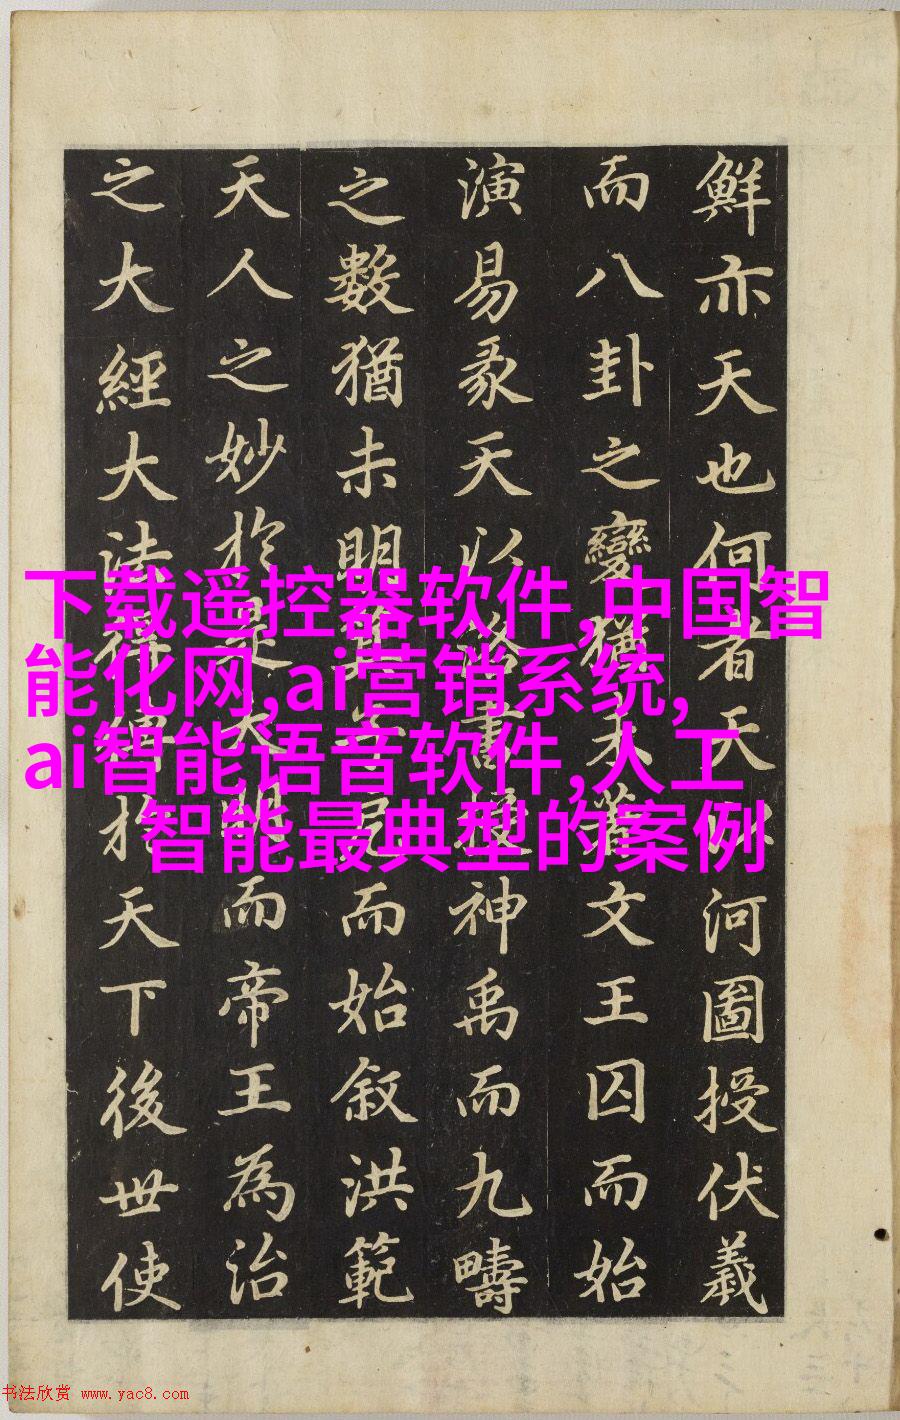 鮮亦天也何者天以河圖授伏羲
而八卦之變猶未著文王囚而始
演易彖天以洛書授神禹而九疇
之數猶未明箕子而始叙洪範
天人之妙於是大明而帝王為治
之大經大法得於天下後世使
下载遥控器软件,中国智
能化网,ai营销系统,
ai智能语音软件,人工
智能最典型的案例
书法欣赏 www.yac8.com